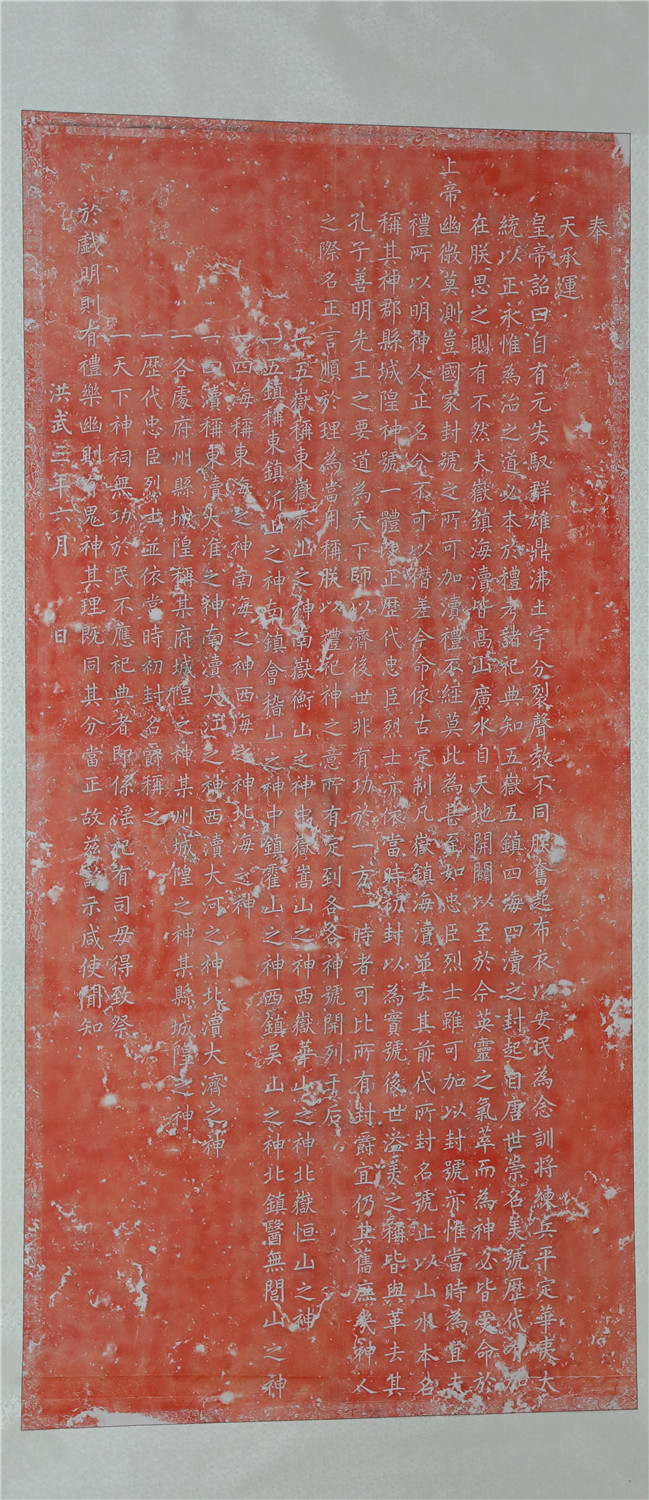 奉
天承運
皇帝詔曰自有元失馭群雄鼎沸土宇分裂聲教不同朕奮起布衣以安民為念訓將練兵平定華夷大
統以正永惟為治之道必本於禮考諸祀典知五嶽五鎮四海四瀆之封起自唐世崇名美號歷代有加
在朕思之則有不然夫嶽鎮海瀆皆高山廣水自天地開闢以至於今英靈之氣萃而為神必皆受命於
上帝幽微莫測豈國家封號之所可加瀆禮不經莫此為甚至如忠臣烈士雖可加以封號亦惟當時為宜夫
禮所以明神人正名分不可以僭差今命依古定制凡嶽鎮海瀆並去其前代所封名號止以山水本名
稱其神郡縣城隍神號一體改正歷代忠臣烈士亦依當時初封以為實號後世溢美之稱皆與革去其
孔子善明先王之要道為天下師以濟後世非有功於一方一時者可比所有封爵宜仍其舊庶幾神人
之際名正言順於理為當用稱朕以禮祀神之意所有定到各各神號開列于后
一五嶽稱東嶽泰山之神南嶽衡山之神中嶽嵩山之神西嶽華山之神北嶽恒山之神
一五鎮稱東鎮沂山之神南鎮會稽山之神中鎮霍山之神西鎮吴山之神北鎮醫無閭山之神
一四海稱東海之神南海之神西海之神北海之神
一四瀆稱東瀆大淮之神南瀆大江之神西瀆大河之神北瀆大濟之神
一各處府州縣城隍稱某府城隍之神某州城隍之神某縣城隍之神
一歷代忠臣烈士並依當時初封名爵稱之
一天下神祠無功於民不應祀典者即係淫祀有司毋得致祭
於戲明則有禮樂幽則有鬼神其理既同其分當正故茲詔示咸使聞知
洪武三年六月 日